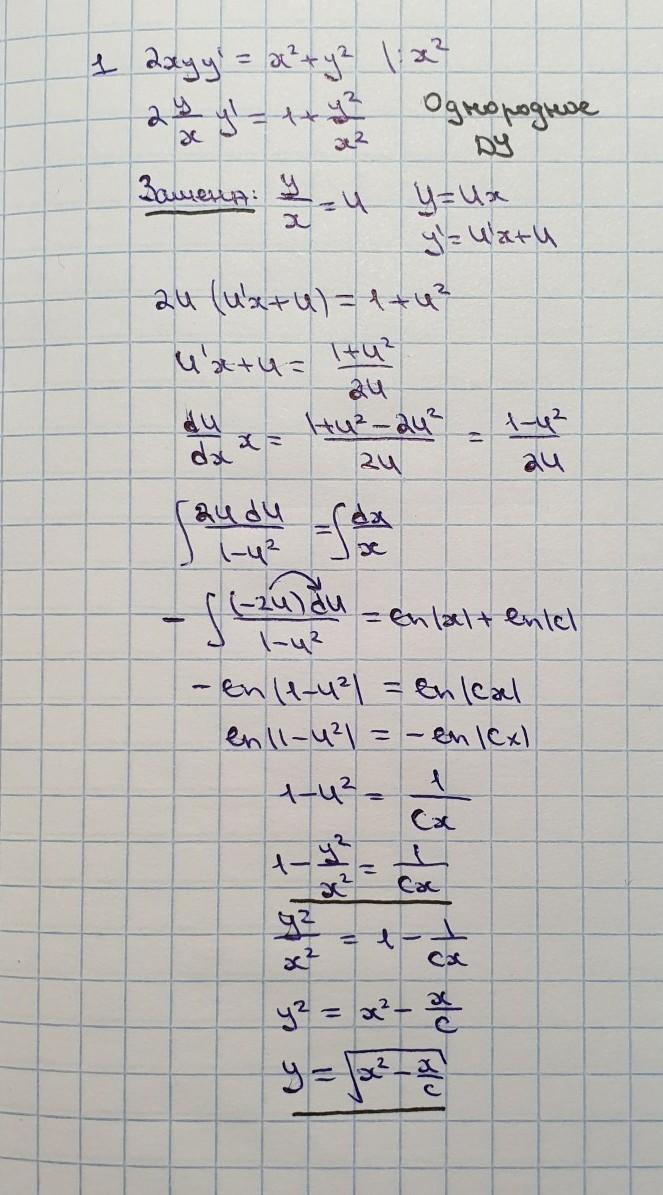 1 2xyy' = x² + y² |: x²
2 y/x y' = 1 + y²/x² Однородное
ДУ
Замена: y/x = u y = ux
y' = u'x + u
2u (u'x + u) = 1 + u²
u'x + u = (1 + u²)/2u
du/dx x = (1 + u² − 2u²)/2u = (1 − u²)/2u
∫ 2u du/(1 − u²) = ∫ dx/x
− ∫ (−2u) du/(1 − u²) = ln|x| + ln|c|
− ln|1 − u²| = ln|cx|
ln|1 − u²| = − ln|cx|
1 − u² = 1/cx
1 − y²/x² = 1/cx
y²/x² = 1 − 1/cx
y² = x² − x/c
y = √(x² − x/c)